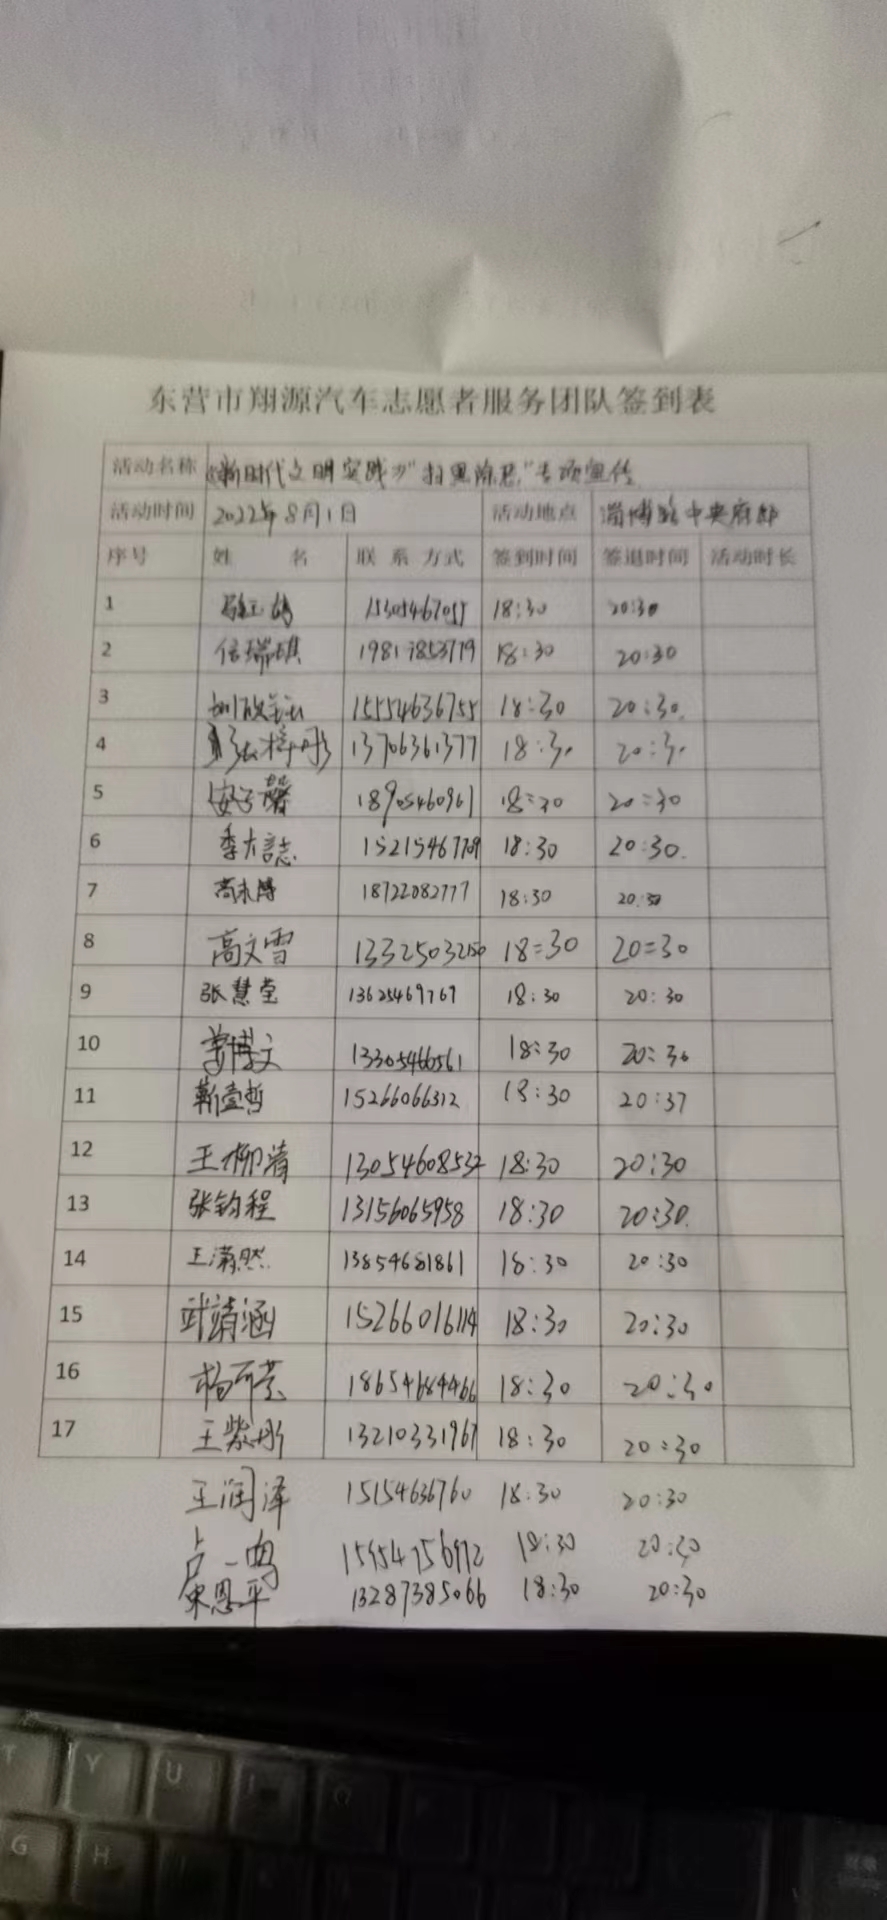 东营市翔源汽车志愿者服务团队签到表
活动名称 《新时代文明实践》"扫黑除恶"专项宣传
活动时间 2022年8月1日 活动地点 淄博路中央府邸
序号 姓 名 联系方式 签到时间 签退时间 活动时长
1 15305467055 18:30 20:30
2 信瑞琪 19817853779 18:30 20:30
3 15554636755 18:30 20:30.
4 张梓彤 13706361377 18:30 20:30
5 安子馨 18905460961 18:30 20:30
6 李大誌 15215467709 18:30 20:30.
7 18722082777 18:30 20:30
8 高文雪 13325032150 18:30 20:30
9 张慧莹 13625469767 18:30 20:30
10 姜博文 13305466561 18:30 20:30
11 靳壹哲 15266066312 18:30 20:37
12 王柳清 13054608532 18:30 20:30
13 张钧程 13156065958 18:30 20:30.
14 王潇然 13854681861 18:30 20:30
15 武靖涵 15266016114 18:30 20:30
16 18654684466 18:30 20:30
17 王紫彤 13210331967 18:30 20:30
王润泽 15154636760 18:30 20:30
卢一鸣 18:30 20:30
宋恩平 13287385066 18:30 20:30
T Y U I O
G H